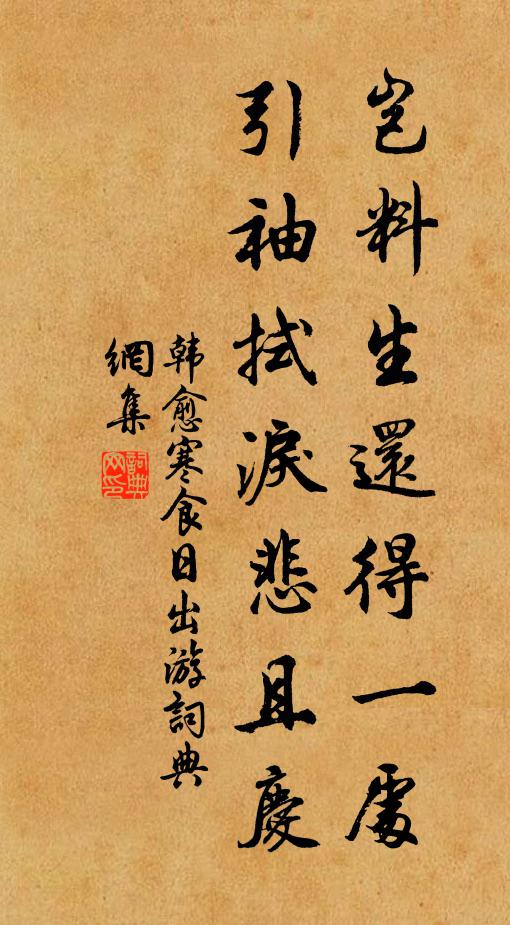 豈料生還得一處
引袖拭淚悲且慶
韩愈寒食日出游詞典
網集
詞典
网印